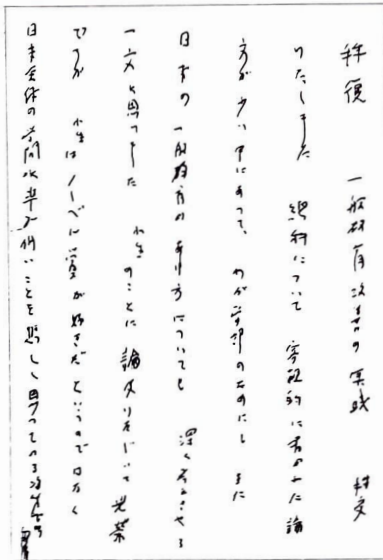 拝復 一般教育次善の実践 拝受
いたしました 総科について 客観的に書かれた論
文が 少い中にあって、 わが学部のためにも また
日本の一般教育のあり方についても 深く考えさせる
一文と思いました 小生のことに 論及いただいて 光栄
ですが 小生はノーベル賞が好きだというのではなく
日本全体の学問水準が低いことを悲しく思っている